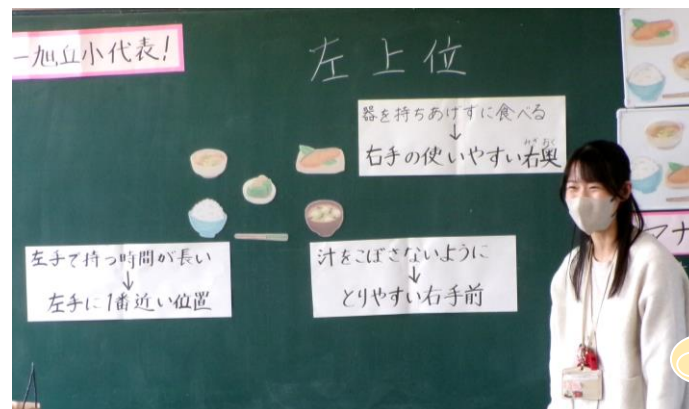 一旭丘小代表!
左上位
器を持ちあげずに食べる
↓
右手の使いやすい右奥
みぎ おく
左手で持つ時間が長い
↓
左手に1番近い位置
汁をこぼさないように
↓
とりやすい右手前
マナ